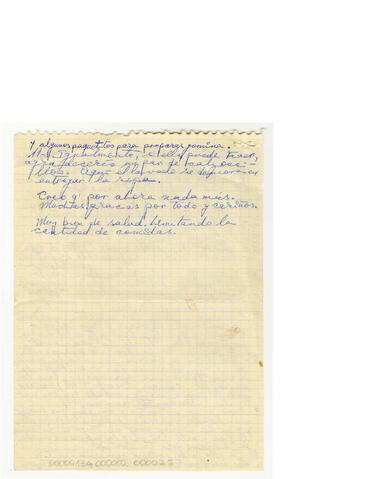 Y algunos paquetitos para preparar
11- Igualmente, si ella puede traer,
agradecería un par de calzonci-
llos. Aquí el lavado se demora en
entregar la ropa.
Creo q' por ahora nada más.
Muchas gracias por todo y cariños.
Muy bien de salud. Limitando la
cantidad de comidas.
00000134 000002 000027